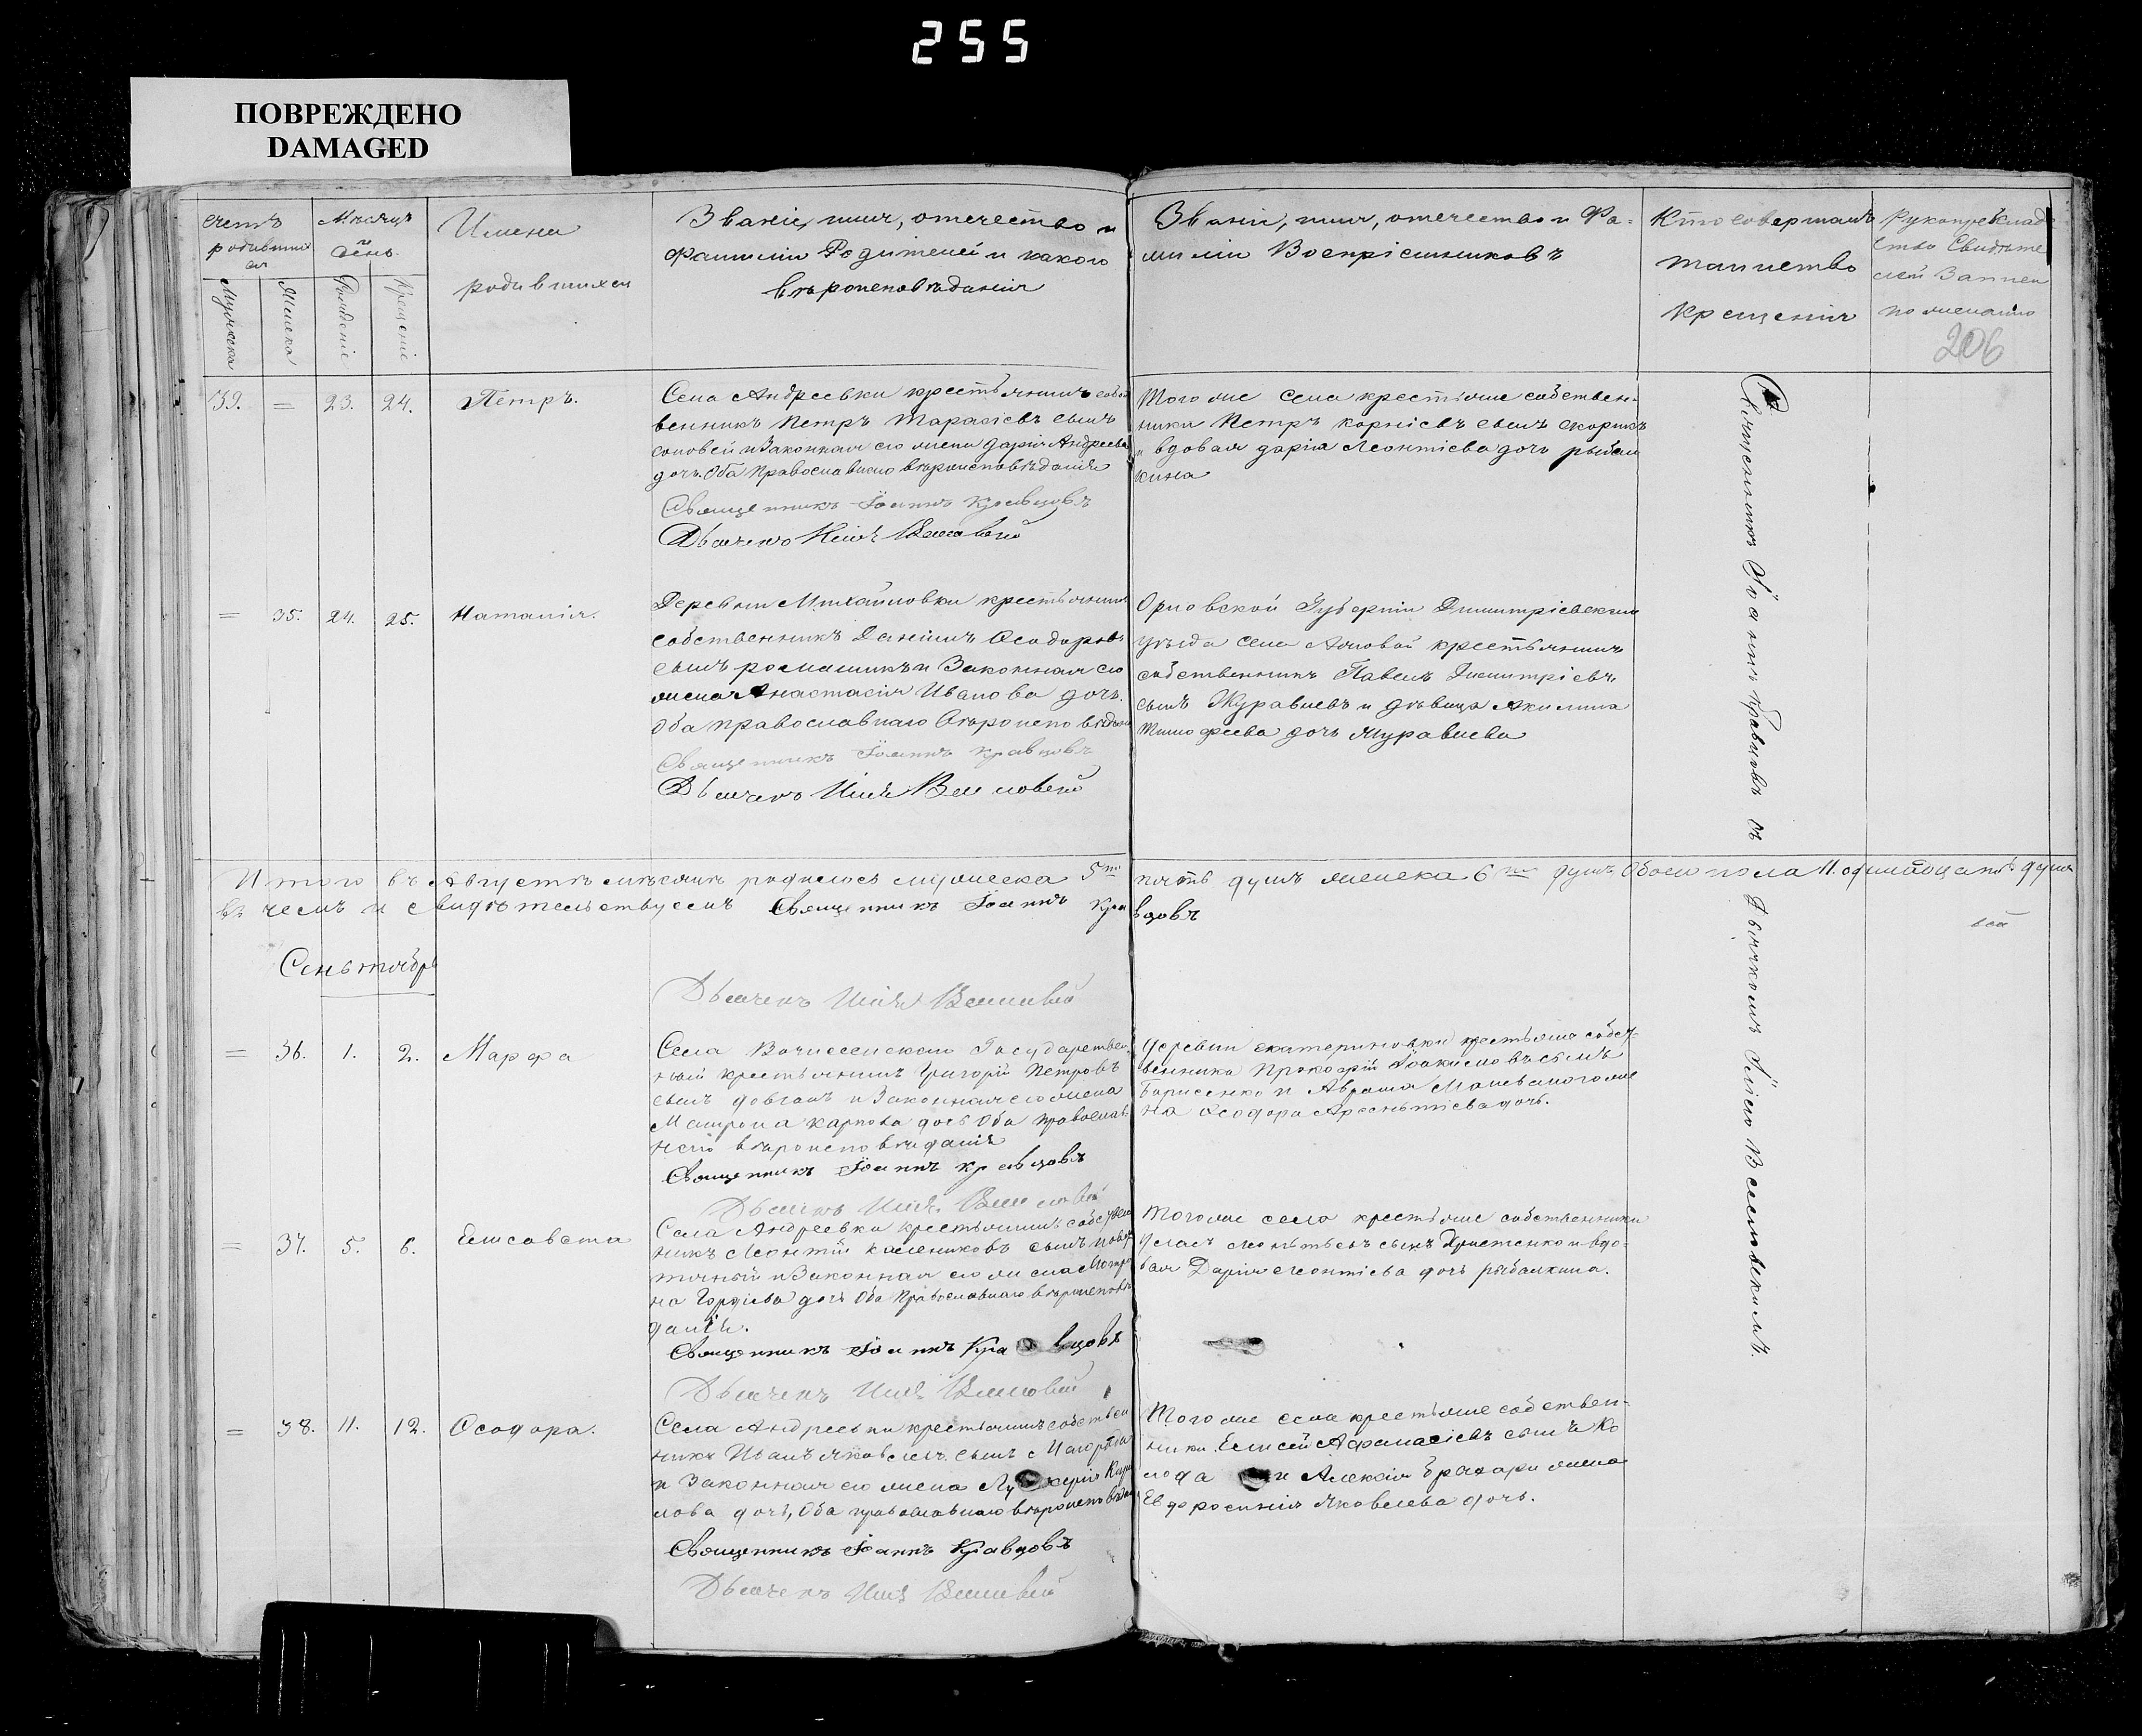 255
ПОВРЕЖДЕНО
DAMAGED
Счетъ
родивших
ся
Мѣсяцъ
и
день.
Имена
родившихся
Званіе, имя, отечество и
Фамиліи Родителей и какого
вѣроисповѣданія
Мужеска
Женска
Рожденіе
Крещеніе
Званіе, имя, отечество и Фа-
миліи Воспріемниковъ
Кто совершалъ
таинство
крещенія
Рукоприклад
ство Свидѣте
лей Записи
по желанію
206
39. = 23. 24. Петръ.
Села Андреевки крестьянинъ собст
венникъ Петръ Тарасіевъ сынъ
соловей и Законная его жена Дарія Андреева
дочь. Оба Православнаго вѣроисповѣданія
Священникъ Іоаннъ Кравцовъ
Дьячекъ Илія
Того же села крестьяне собствен-
ники Петръ Корніевъ сынъ скорикъ
и вдовая Дарія Леонтіева дочь рыбал
кина
= 35. 24. 25. Наталія.
Деревни Михайловки крестьянинъ
собственникъ Даніилъ Ѳеодоровъ
сынъ ромашикъ и Законная его
жена Анастасія Иванова дочь.
Оба православнаго Вѣроисповѣдан
Священникъ Іоаннъ Кравцовъ
Дьячекъ Илія
Орловской Губерніи Димитріевскаго
уѣзда села крестьянинъ
собственникъ Павелъ Димитріевъ
сынъ Журавлевъ и дѣвица Акилина
Тимофеева дочь Журавлева
Итого въ Августѣ мѣсяцѣ родилось мужеска 5ть пять душъ женска 6ть душъ Обоего пола 11. одинадцать душъ
въ чемъ и свидѣтельствуемъ Священникъ Іоаннъ Кравцовъ
Сеньтябрь
Дьячекъ Илія
= 36. 1. 2. Марфа
Села Вознесенскаго Государствен-
ный крестьянинъ Григорій Петровъ
сынъ довганъ и Законная его жена
Матрона Карпова дочь Оба православ
наго вѣроисповѣданія
Священникъ Іоаннъ Кравцовъ
Деревни екатериновки крестьяне собст-
венники Прокофій Іоакимовъ сынъ
Борисенко и Аврама жена
Ѳеодора дочь.
Дьячекъ Илія
= 37. 5. 6. Елисавета
Села Андреевки крестьянинъ собствен
никъ Леонтій сынъ
и Законная его жена Матро
на Гордіева дочь Оба Православнаго вѣроисповѣ
данія.
Священникъ Іоаннъ Кравцовъ
Того же села крестьяне собственники
сынъ Христенко и вдо-
вая Дарія Леонтіева дочь рыбалкина.
Дьячекъ Илія
= 38. 11. 12. Ѳеодора.
Села Андреевки крестьянинъ собствен
никъ Иванъ Яковлевъ сынъ
и Законная его жена Кири
лова дочь, Оба православнаго вѣроисповѣдан
Священникъ Іоаннъ Кравцовъ
Дьячекъ Илія
Того же села крестьяне собствен-
ники Елисей Афанасіевъ сынъ Ко
лода и Алексія жена
Евдоросинія Яковлева дочь.
Священникъ Іоаннъ Кравцовъ съ Дьячкомъ Иліею